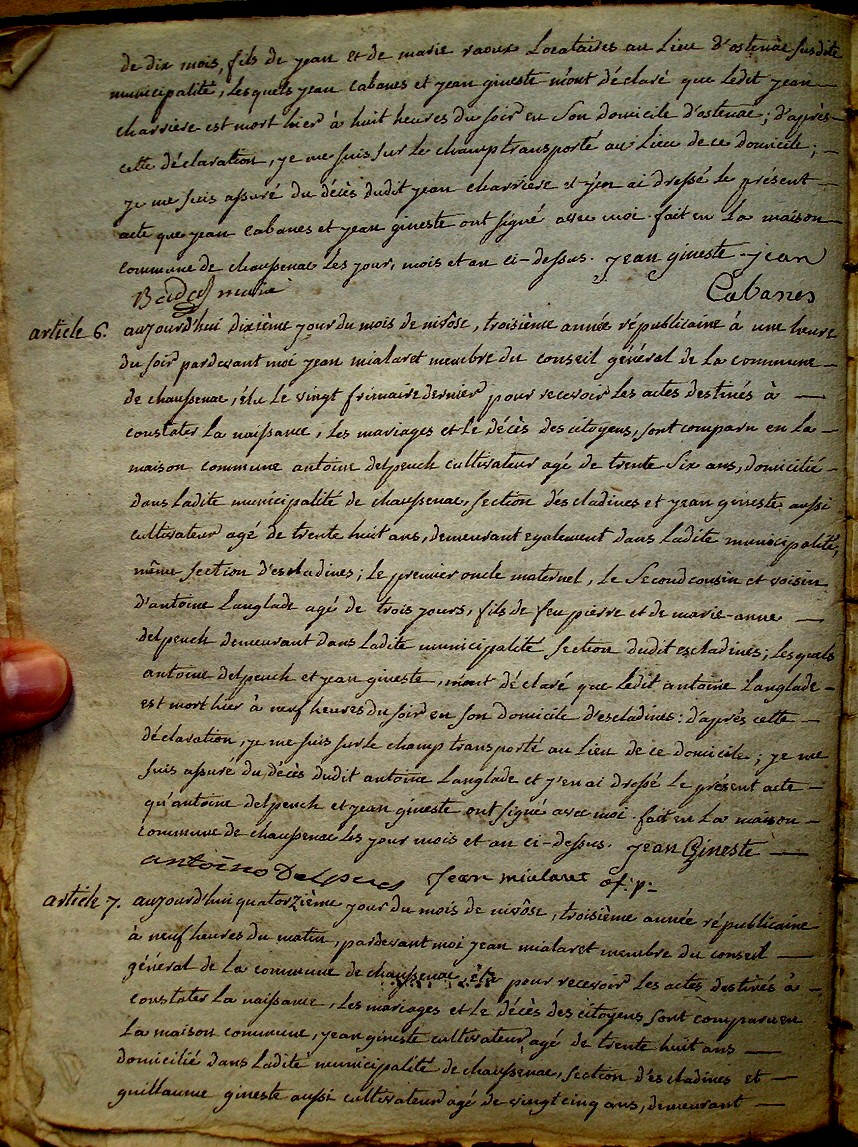 de dix mois, fils de jean et de marie raoux Locataires au Lieu d'ostenac susdite
municipalité, lesquels jean Cabanes et jean gineste m'ont déclaré que ledit jean
charriere est mort hier à huit heures du soir en son domicile d'ostenac; d'après
cette déclaration, je me suis sur le champ transporté au Lieu de ce domicile;
je me suis assuré du décès dudit jean charriere et j'en ai dressé le présent
acte que jean Cabanes et jean gineste ont signé avec moi. fait en La maison
commune de chaussenac les jour, mois et an ci-dessus. jean gineste - jean
maire Cabanes
article 6. aujourd'hui dixième jour du mois de nivôse, troisième année républicaine à une heure
du soir pardevant moi jean mialaret membre du conseil général de La commune
de chaussenac, élu le vingt frimaire dernier pour recevoir les actes destinés à
constater La naissance, les mariages et le décès des citoyens, sont comparu en La
maison commune antoine delpeuch cultivateur agé de trente six ans, domicilié
dans ladite municipalité de chaussenac, section d'escladines et jean gineste aussi
cultivateur agé de trente huit ans, demeurant egalement dans ladite municipalité,
même section d'escladines; le premier oncle maternel, le second cousin et voisin
d'antoine Langlade agé de trois jours, fils de feu pierre et de marie-anne
delpeuch demeurant dans ladite municipalité section dudit escladines; lesquels
antoine delpeuch et jean gineste, m'ont déclaré que ledit antoine Langlade
est mort hier à neuf heures du soir en son domicile d'escladines: d'après cette
déclaration, je me suis sur le champ transporté au Lieu de ce domicile; je me
suis assuré du décès dudit antoine Langlade et j'en ai dressé le présent acte
qu'antoine delpeuch et jean gineste ont signé avec moi. fait en La maison
commune de chaussenac les jour mois et an ci-dessus. jean Gineste
antoino Delpuch jean mialaret of: p:
article 7. aujourd'hui quatorzième jour du mois de nivôse, troisième année républicaine
à neuf heures du matin, pardevant moi jean mialaret membre du conseil
général de La commune de chaussenac, élu pour recevoir les actes destinés à
constater La naissance, les mariages et le décès des citoyens sont comparu en
La maison commune, jean gineste cultivateur agé de trente huit ans
domicilié dans ladite municipalité de chaussenac, section d'escladines et
guillaume gineste aussi cultivateur agé de vingt cinq ans, demeurant